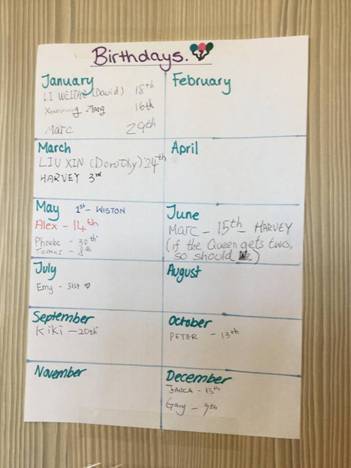 Birthdays.
January
LI WEIZHE (David) 18th
16th
Marc 29th
February
March
LIU XIN (Dorothy) 24th
HARVEY 3rd
April
May 1st - WISTON
Alex - 14th
Phoebe - 30th
Tomas - 8th
June
Marc - 15th - HARVEY
(if the Queen gets two,
so should
July
Emy - 31st ♡
August
September
Kiki - 20th
October
PETER - 13th
November
December
- 13th
Guy - 9th